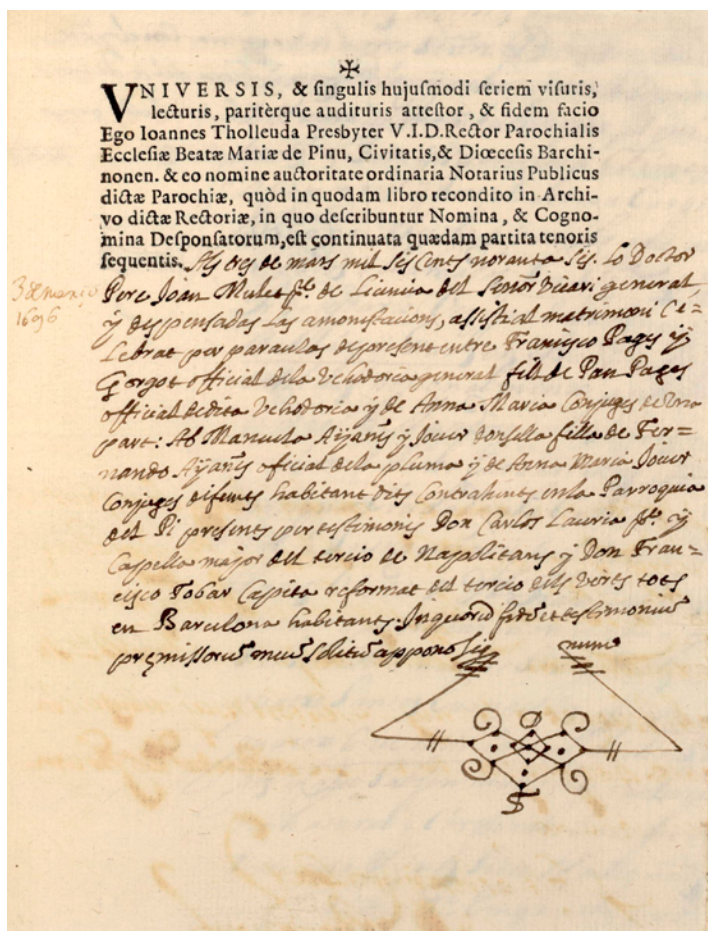 ✠
VNIVERSIS, & singulis hujusmodi seriem visuris,
lecturis, paritèrque audituris attestor, & fidem facio
Ego Ioannes Tholleuda Presbyter V.I.D. Rector Parochialis
Ecclesiæ Beatæ Mariæ de Pinu, Civitatis, & Diœcesis Barchi-
nonen. & eo nomine auctoritate ordinaria Notarius Publicus
dictæ Parochiæ, quòd in quodam libro recondito in Archi-
vo dictæ Rectoriæ, in quo describuntur Nomina, & Cogno-
mina Desponsatorum, est continuata quædam partita tenoris
sequentis. Als tres de mars mil sis cents noranta sis. Lo Doctor
3 de março
1696
Pere Joan Mulet pre. de licencia del Señor Vicari general,
y dispensadas las amonestacions, assistí al matrimoni ce=
lebrat per paraulas de present entre Francisco Pages y
Gorgot official de la Vehedoria general fill de Pau Pages
official de dita Vehedoria y de Anna Maria Conjuges de una
part: Ab Manuela Ayanis y Jover donsella filla de Fer=
nando Ayanis oficial de la pluma y de Anna Maria Jover
Conjuges difunts habitant dits Contrahents en la Parroquia
del Pi presents per testimonis Don Carlos Lauria pre. y
Capella major del tercio de Napolitans y Don Fran=
cisco Tobar Capita reformat del tercio dels verts tots
en Barcelona habitants. In quorum fidem et testimonium
premissorum meum solitum appono Sig num